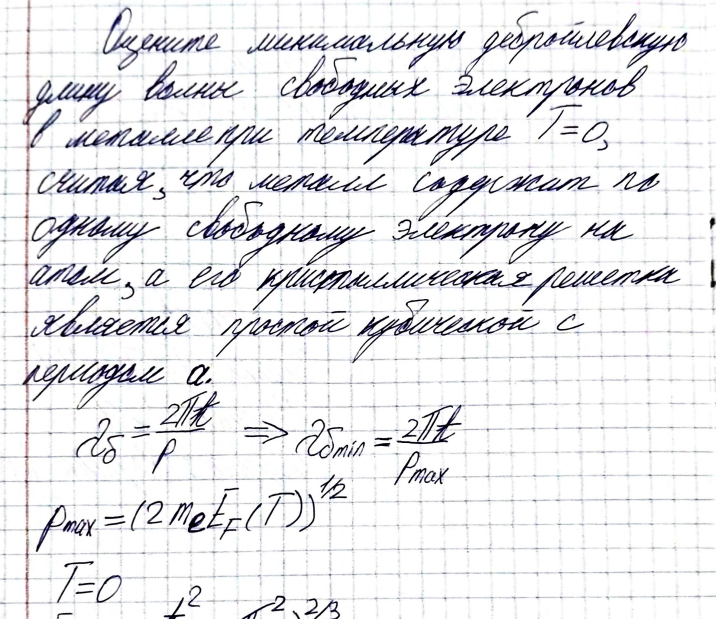 Оцените минимальную дебройлевскую
длину волны свободных электронов
в металле при температуре T=0,
считая, что металл содержит по
одному свободному электрону на
атом, а его кристаллическая решетка
является простой кубической с
периодом a.
λб = 2πħ/p => λб min = 2πħ/Pmax
Pmax = (2 me EF(T))^1/2
T=0